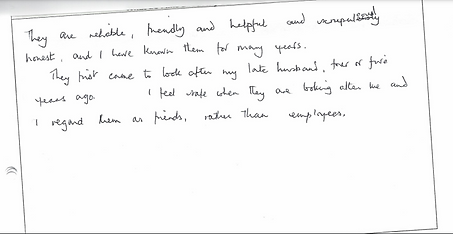 They are reliable, friendly and helpful and scrupulously
honest, and I have known them for many years.
They first came to look after my late husband, four or five
years ago. I feel safe when they are looking after me and
I regard them as friends, rather than employees.